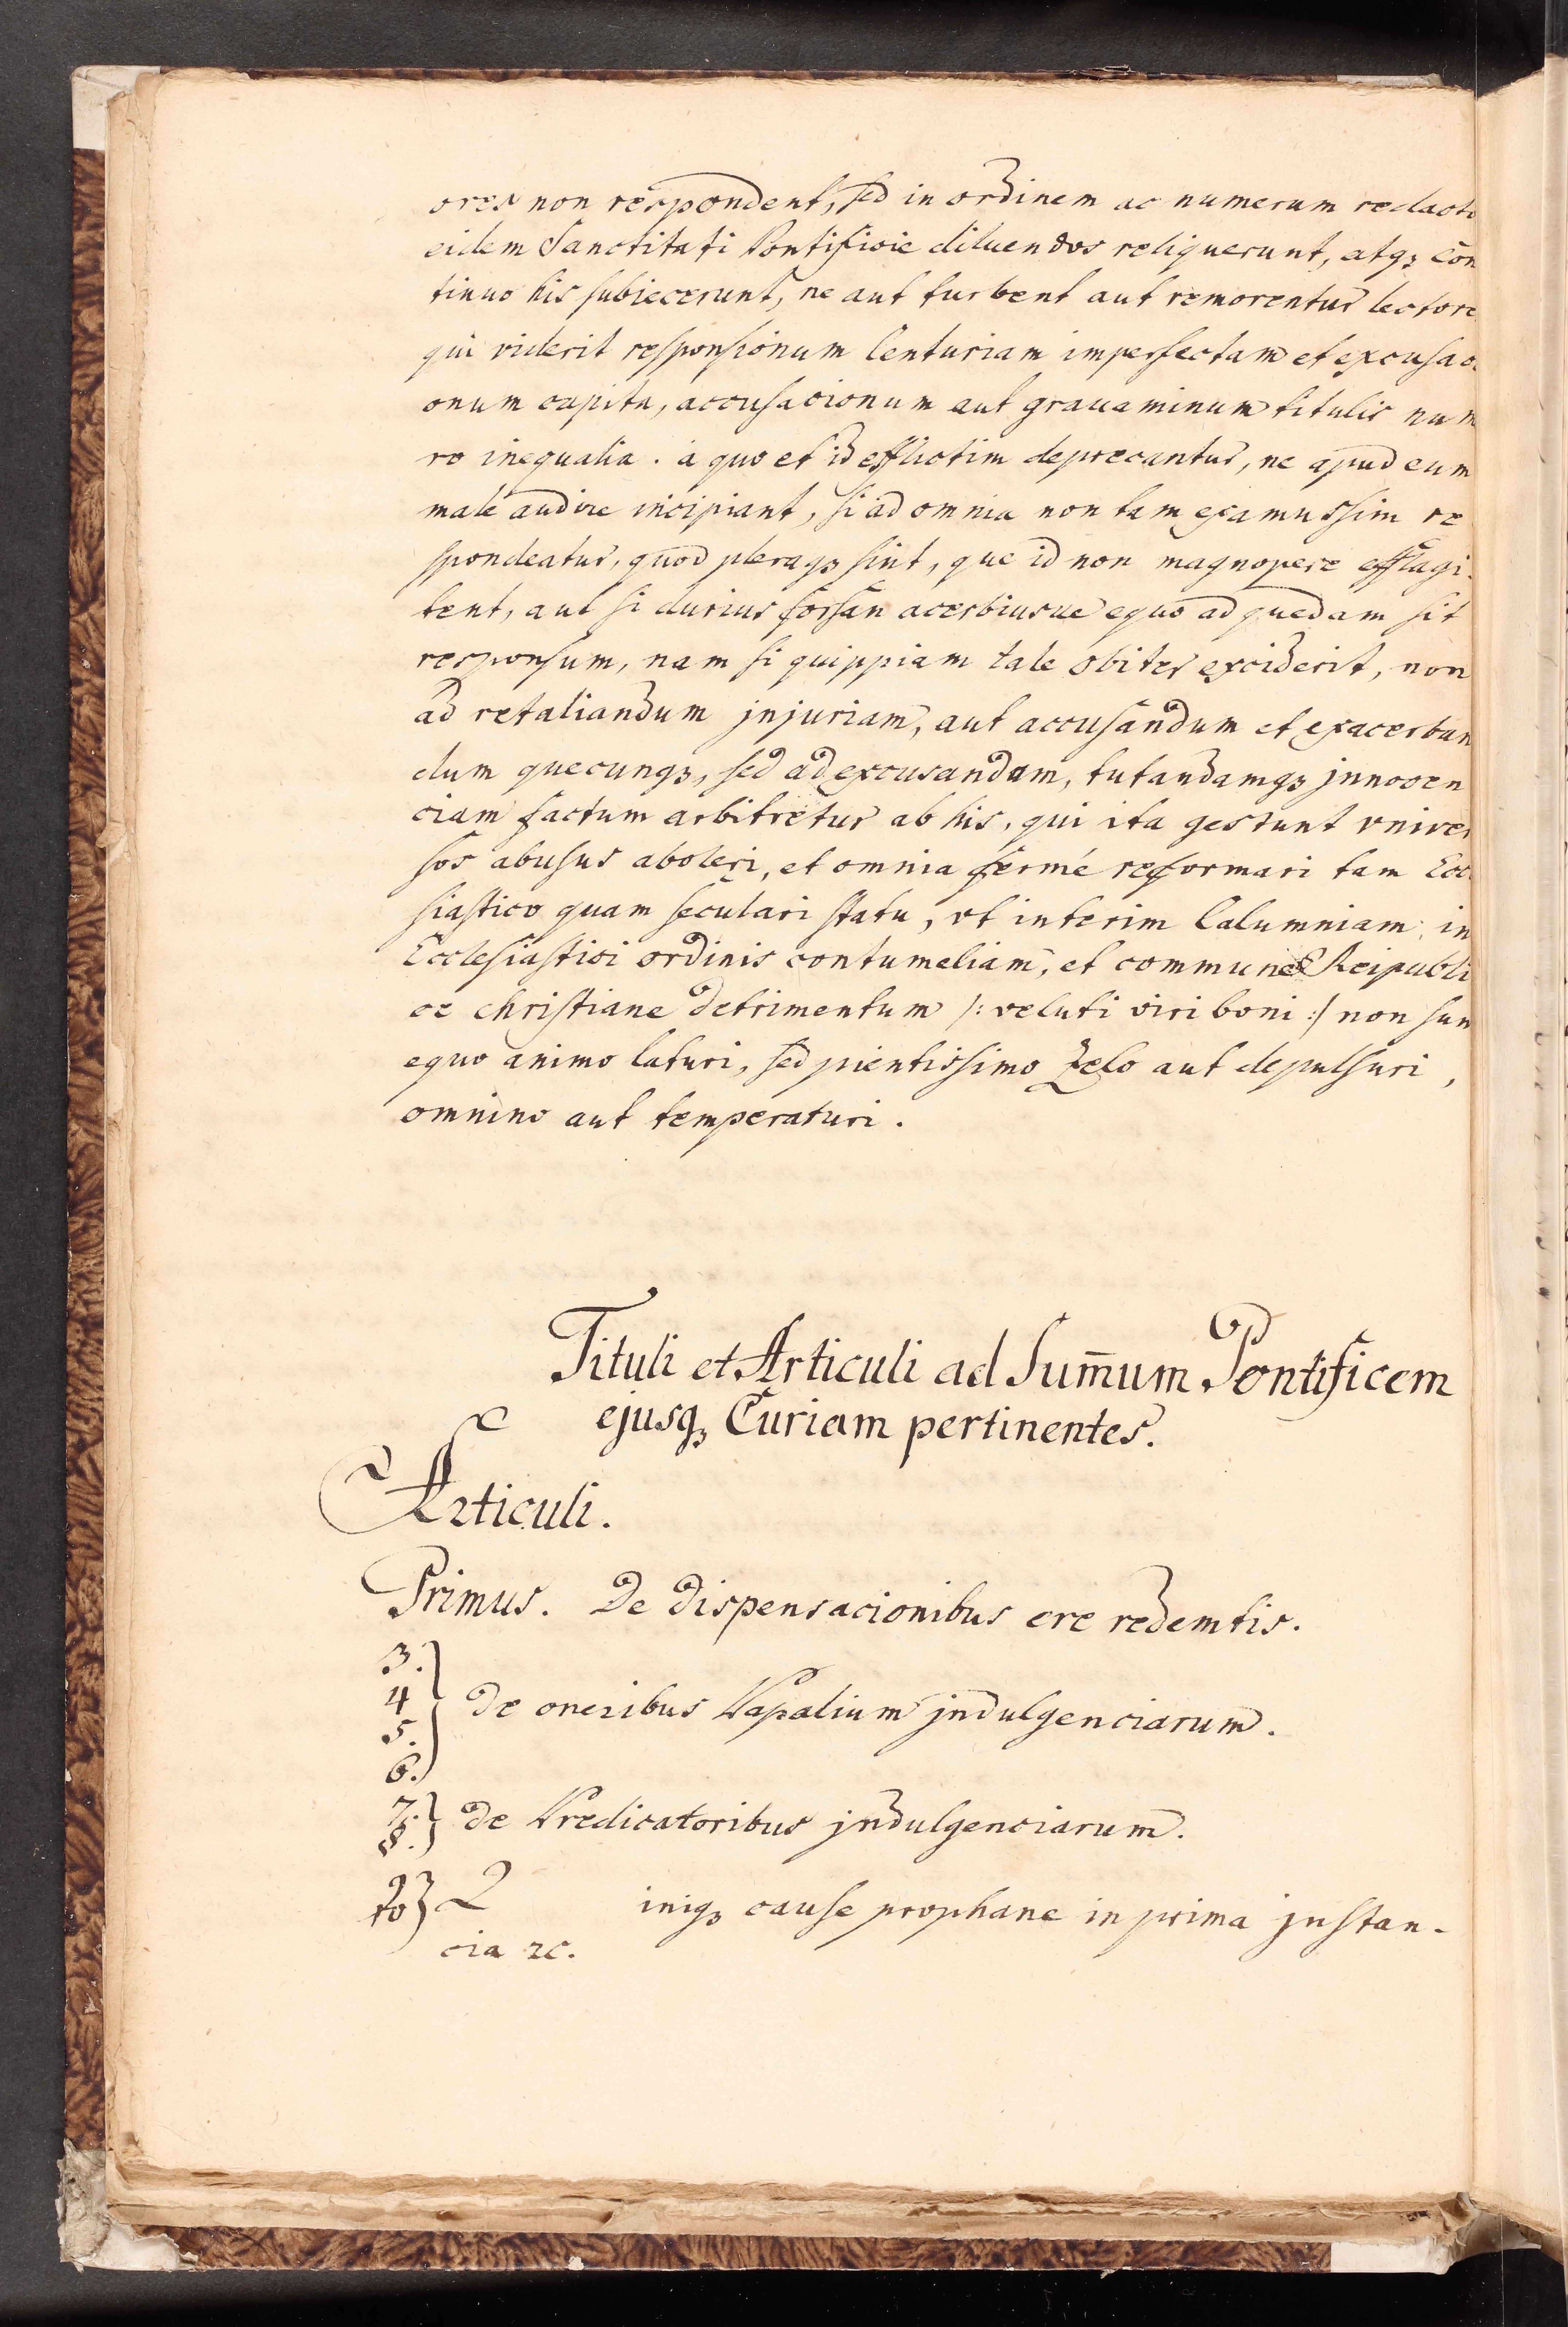 ores non respondent, sed in ordinem ac numerum redacto
eidem Sanctitati Pontificie diluendos reliquerunt, atqꝫ con
tinuo his subiecerunt, ne aut turbent aut remorentur lectore
qui viderit responsionum Centuriam imperfectam et excusac
onum capita, accusacionum aut grauaminum titulis num
ro inequalia. à quo et id efflictim deprecantur, ne apud eum
male audire incipiant, si ad omnia non tam examussim re
spondeatur, quod pleraqꝫ sint, que id non magnopere efflagi-
tent, aut si durius forsan acerbiusue equo ad quedam sit
responsum, nam si quippiam tale obiter exciderit, non
ad retaliandum jnjuriam, aut accusandum et exacerban
dum quecunqꝫ, sed ad excusandam, tutandamqꝫ jnnocen
ciam factum arbitretur ab his, qui ita gestunt vniver
sos abusus aboleri, et omnia fermé reformari tam Eccl
siastico quam seculari statu, vt interim Calumniam in
Ecclesiastici ordinis contumeliam, et commune Reipubli
ce christiane detrimentum /: veluti viri boni :/ non sun
equo animo laturi, sed pientissimo zelo aut depulsuri,
omnino aut temperaturi.
Tituli et Articuli ad Sum̄um Pontificem
ejusqꝫ Curiam pertinentes.
Articuli.
Primus. De dispensacionibus ere redemtis.
3.
4
5.
6.
} de oneribus Papalium jndulgenciarum.
7.
8.
} de Predicatoribus jndulgenciarum.
9
10
} 2 iniqꝫ cause prophane in prima jnstan-
cia ꝛc.